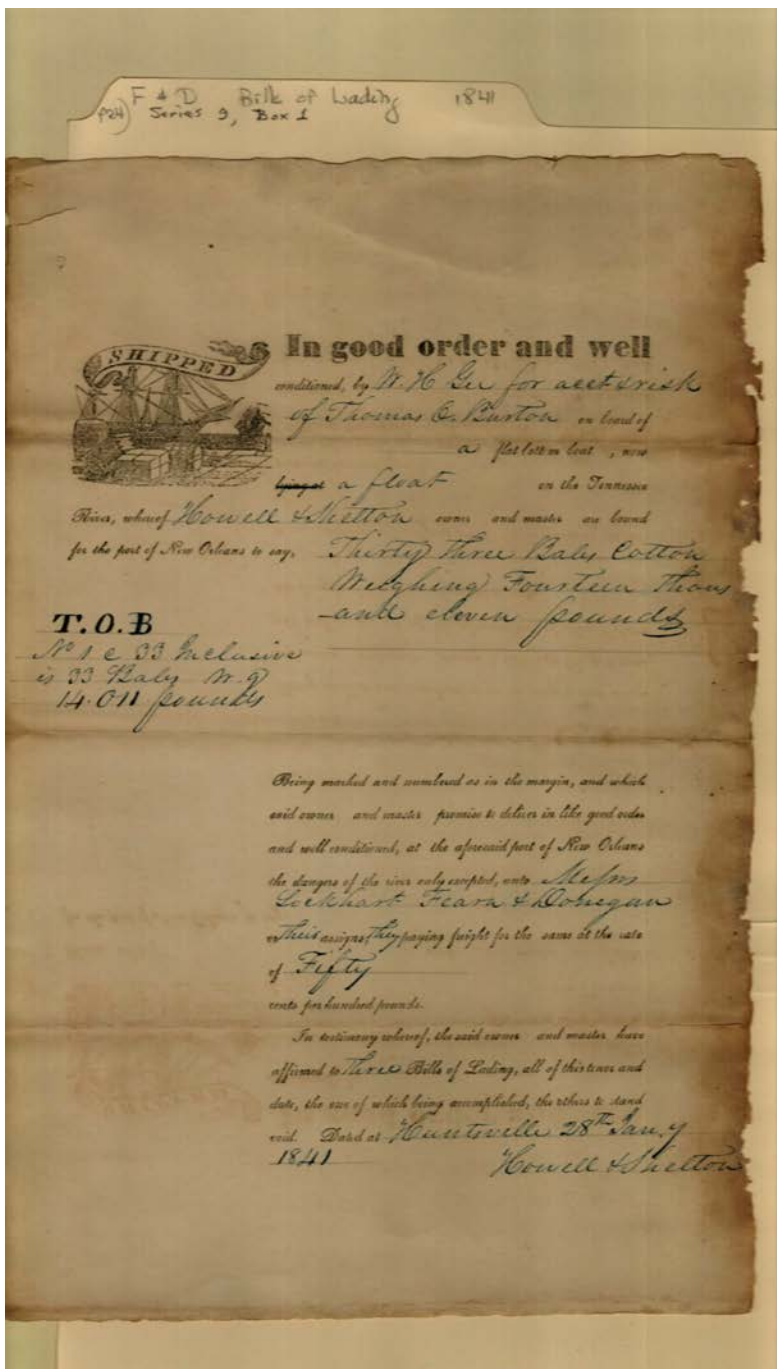 F & D Bills of Lading 1841
P24) Series 9, Box 1
SHIPPED
In good order and well
conditioned, by W. H Gee for acct & risk
of Thomas O. Burton on board of
a flat bottom boat, now
lying at a float on the Tennessee
River, whereof Howell & Shelton owner and master are bound
for the port of New Orleans to say,
Thirty three Bales Cotton
Weighing Fourteen Thous
and eleven pounds
T.O.B
No 1 @ 33 Inclusive
is 33 Bales W.g
14.011 pounds
Being marked and numbered as in the margin, and which
said owner and master promise to deliver in like good order
and well conditioned, at the aforesaid port of New Orleans
the dangers of the river only excepted, unto Messrs
Lockhart Fearn & Donegan
or Their assigns, they paying freight for the same at the rate
of Fifty
cents per hundred pounds.
In testimony whereof, the said owner and master have
affirmed to Three Bills of Lading, all of this tenor and
date, the one of which being accomplished, the others to stand
void. Dated at Huntsville 28th Jan.y
1841
Howell & Shelton